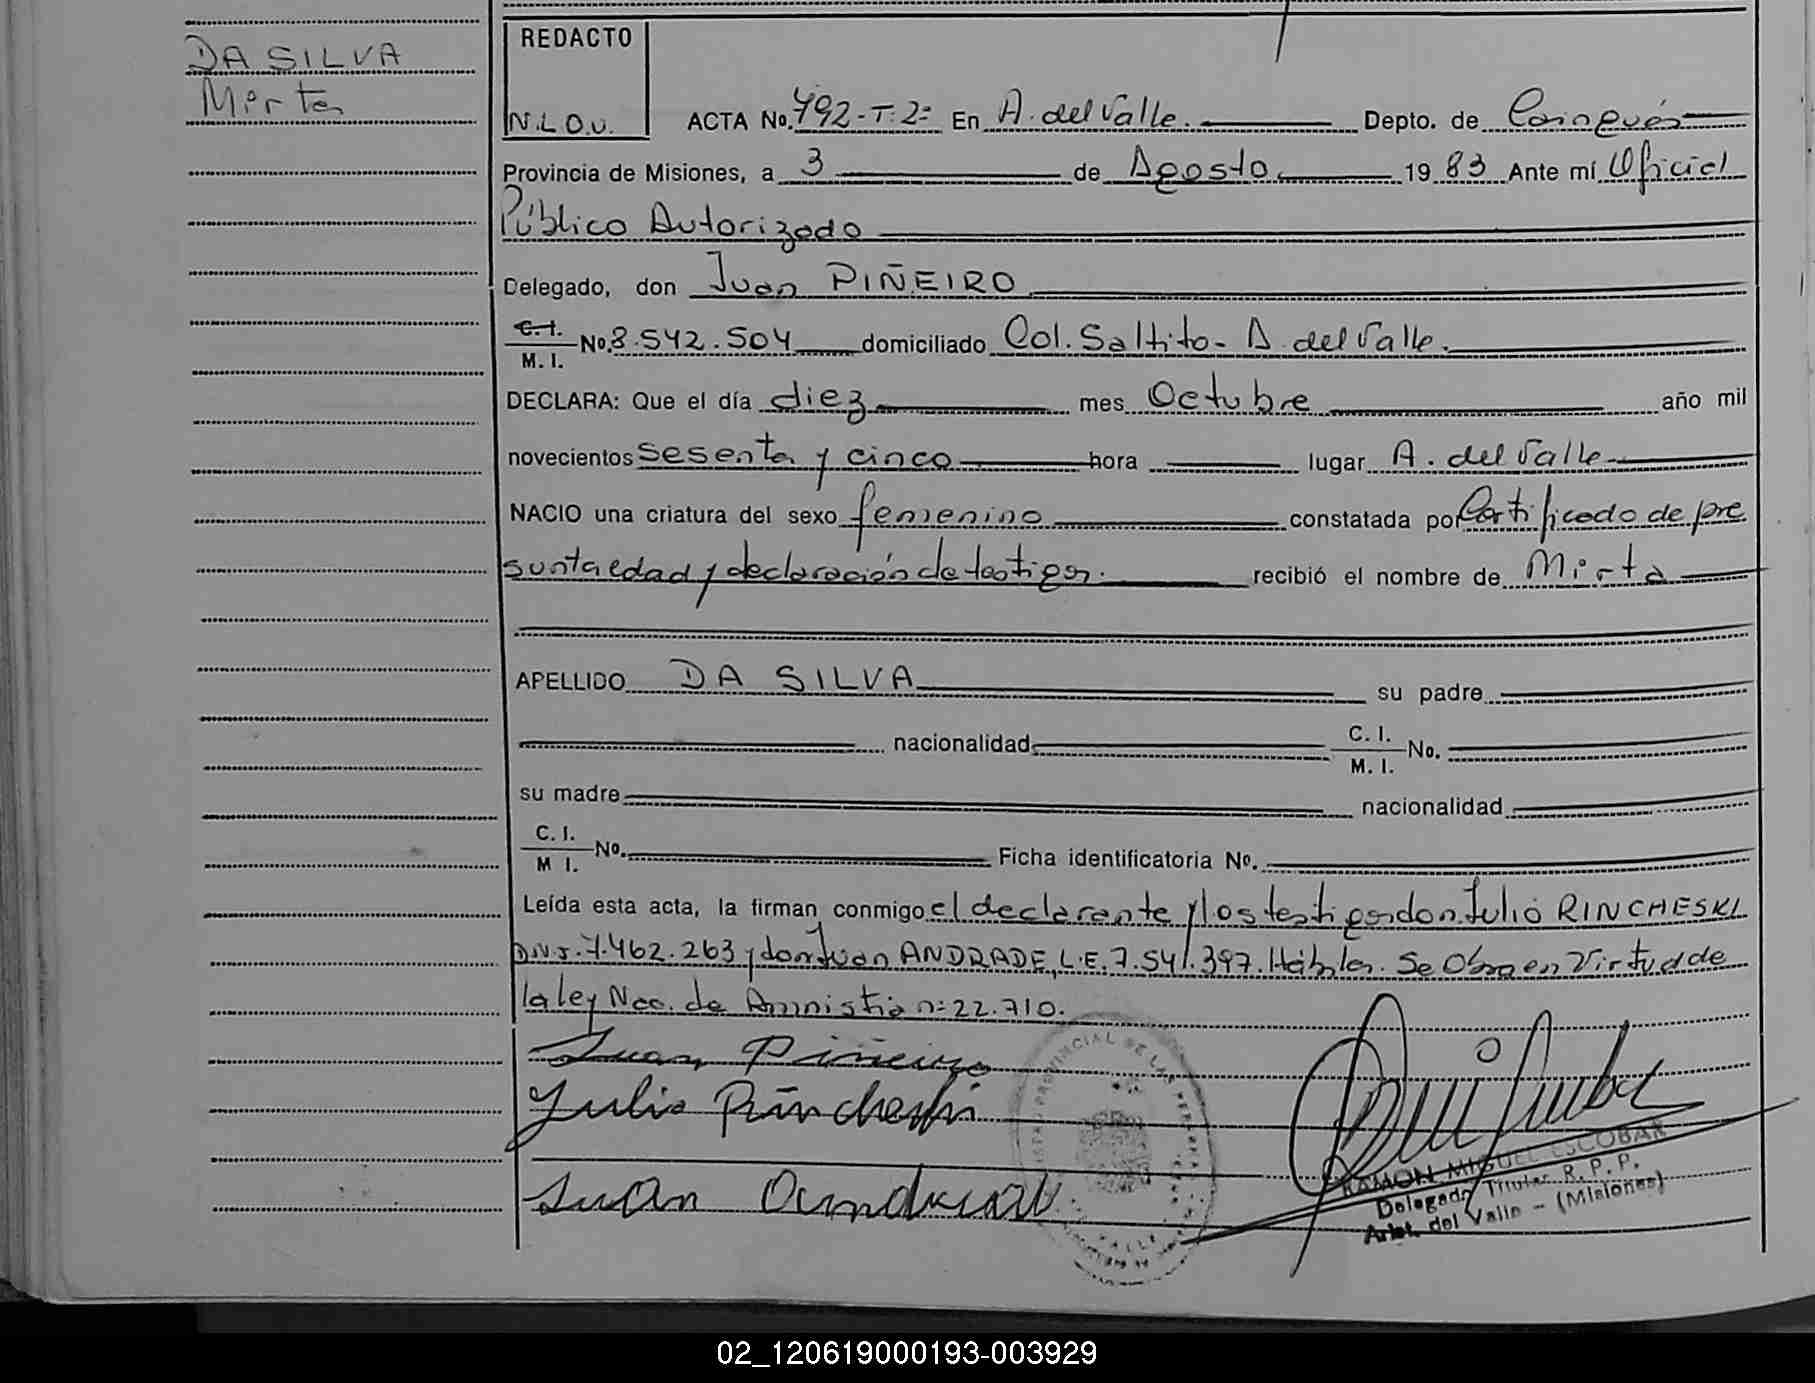 DA SILVA
Mirta
REDACTO
N.L.O.U.
ACTA No. 492-T:2º En A. del Valle. Depto. de Cainguás
Provincia de Misiones, a 3 de Agosto 1983 Ante mí Oficial
Público Autorizado
Delegado, don Juan PIÑEIRO
C.I. M.I. No. 8.542.504 domiciliado Col. Saltito - A. del Valle.
DECLARA: Que el día diez mes Octubre año mil
novecientos sesenta y cinco hora lugar A. del Valle
NACIO una criatura del sexo femenino constatada por Certificado de pre
sunta edad y declaración de testigos. recibió el nombre de Mirta
APELLIDO DA SILVA su padre
nacionalidad C. I. M. I. No.
su madre nacionalidad
C. I. M I. No. Ficha identificatoria No.
Leída esta acta, la firman conmigo el declarante y los testigos don Julio RINCHESKI
D.N.I. 7.462.263 y don Juan ANDRADE, L.E. 7.541.397. Hábiles. Se Obra en Virtud de
la ley Nac. de Amnistia nº 22.710.
Juan Piñeiro
Julio Rincheski
Juan Andrade
RAMON MIGUEL ESCOBAR
Delegado Titular R. P. P.
Arist. del Valle - (Misiones)
02_120619000193-003929